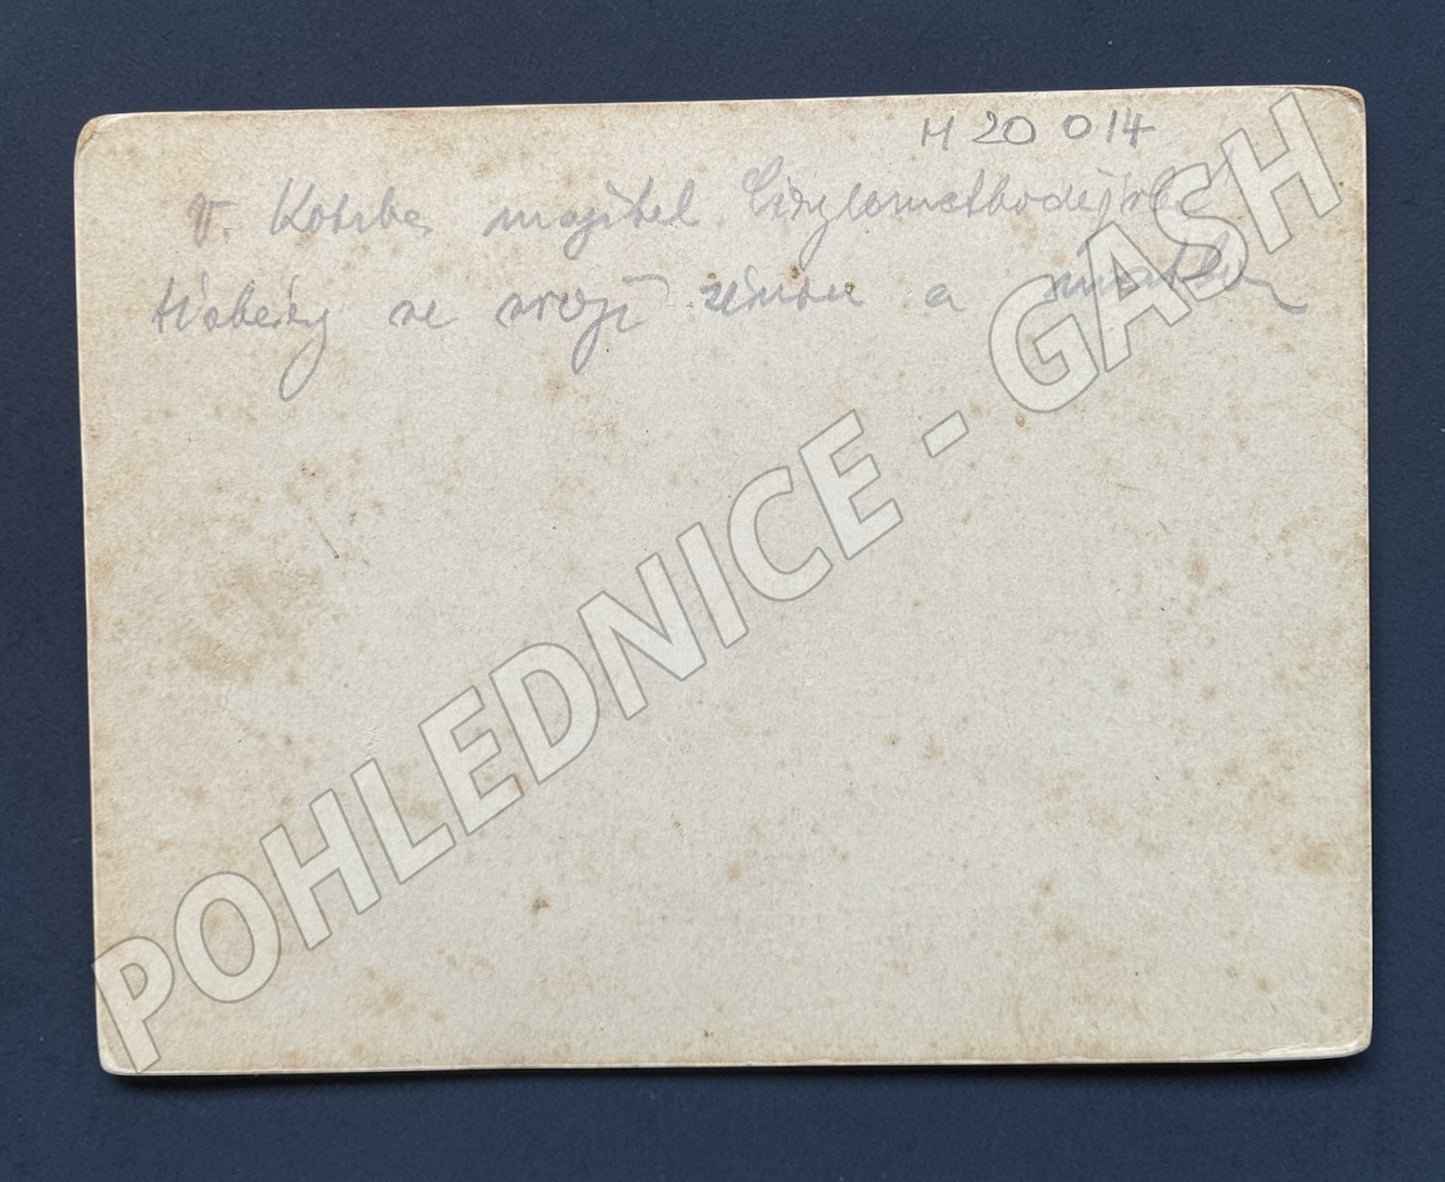 H 20 014
V. Kotrba, majitel Cirylomethodějské
se svojí ženou a matkou
POHLEDNICE - GASH